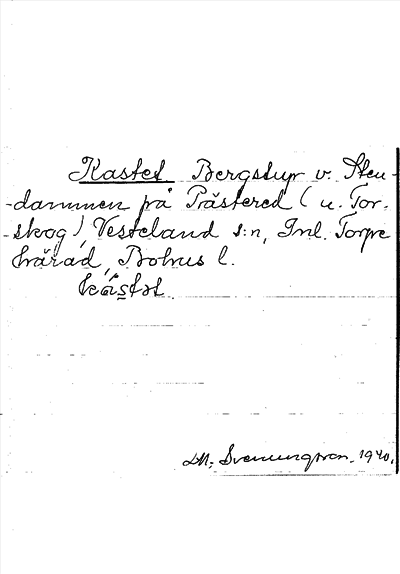 Kastet Bergstup v. Sten-
-dammen på Prästered (u. Tor-
-skog), Vesteland s:n, Inl. Torpe
härad, Bohus l.
kástət
M. Svenungsson. 1940.